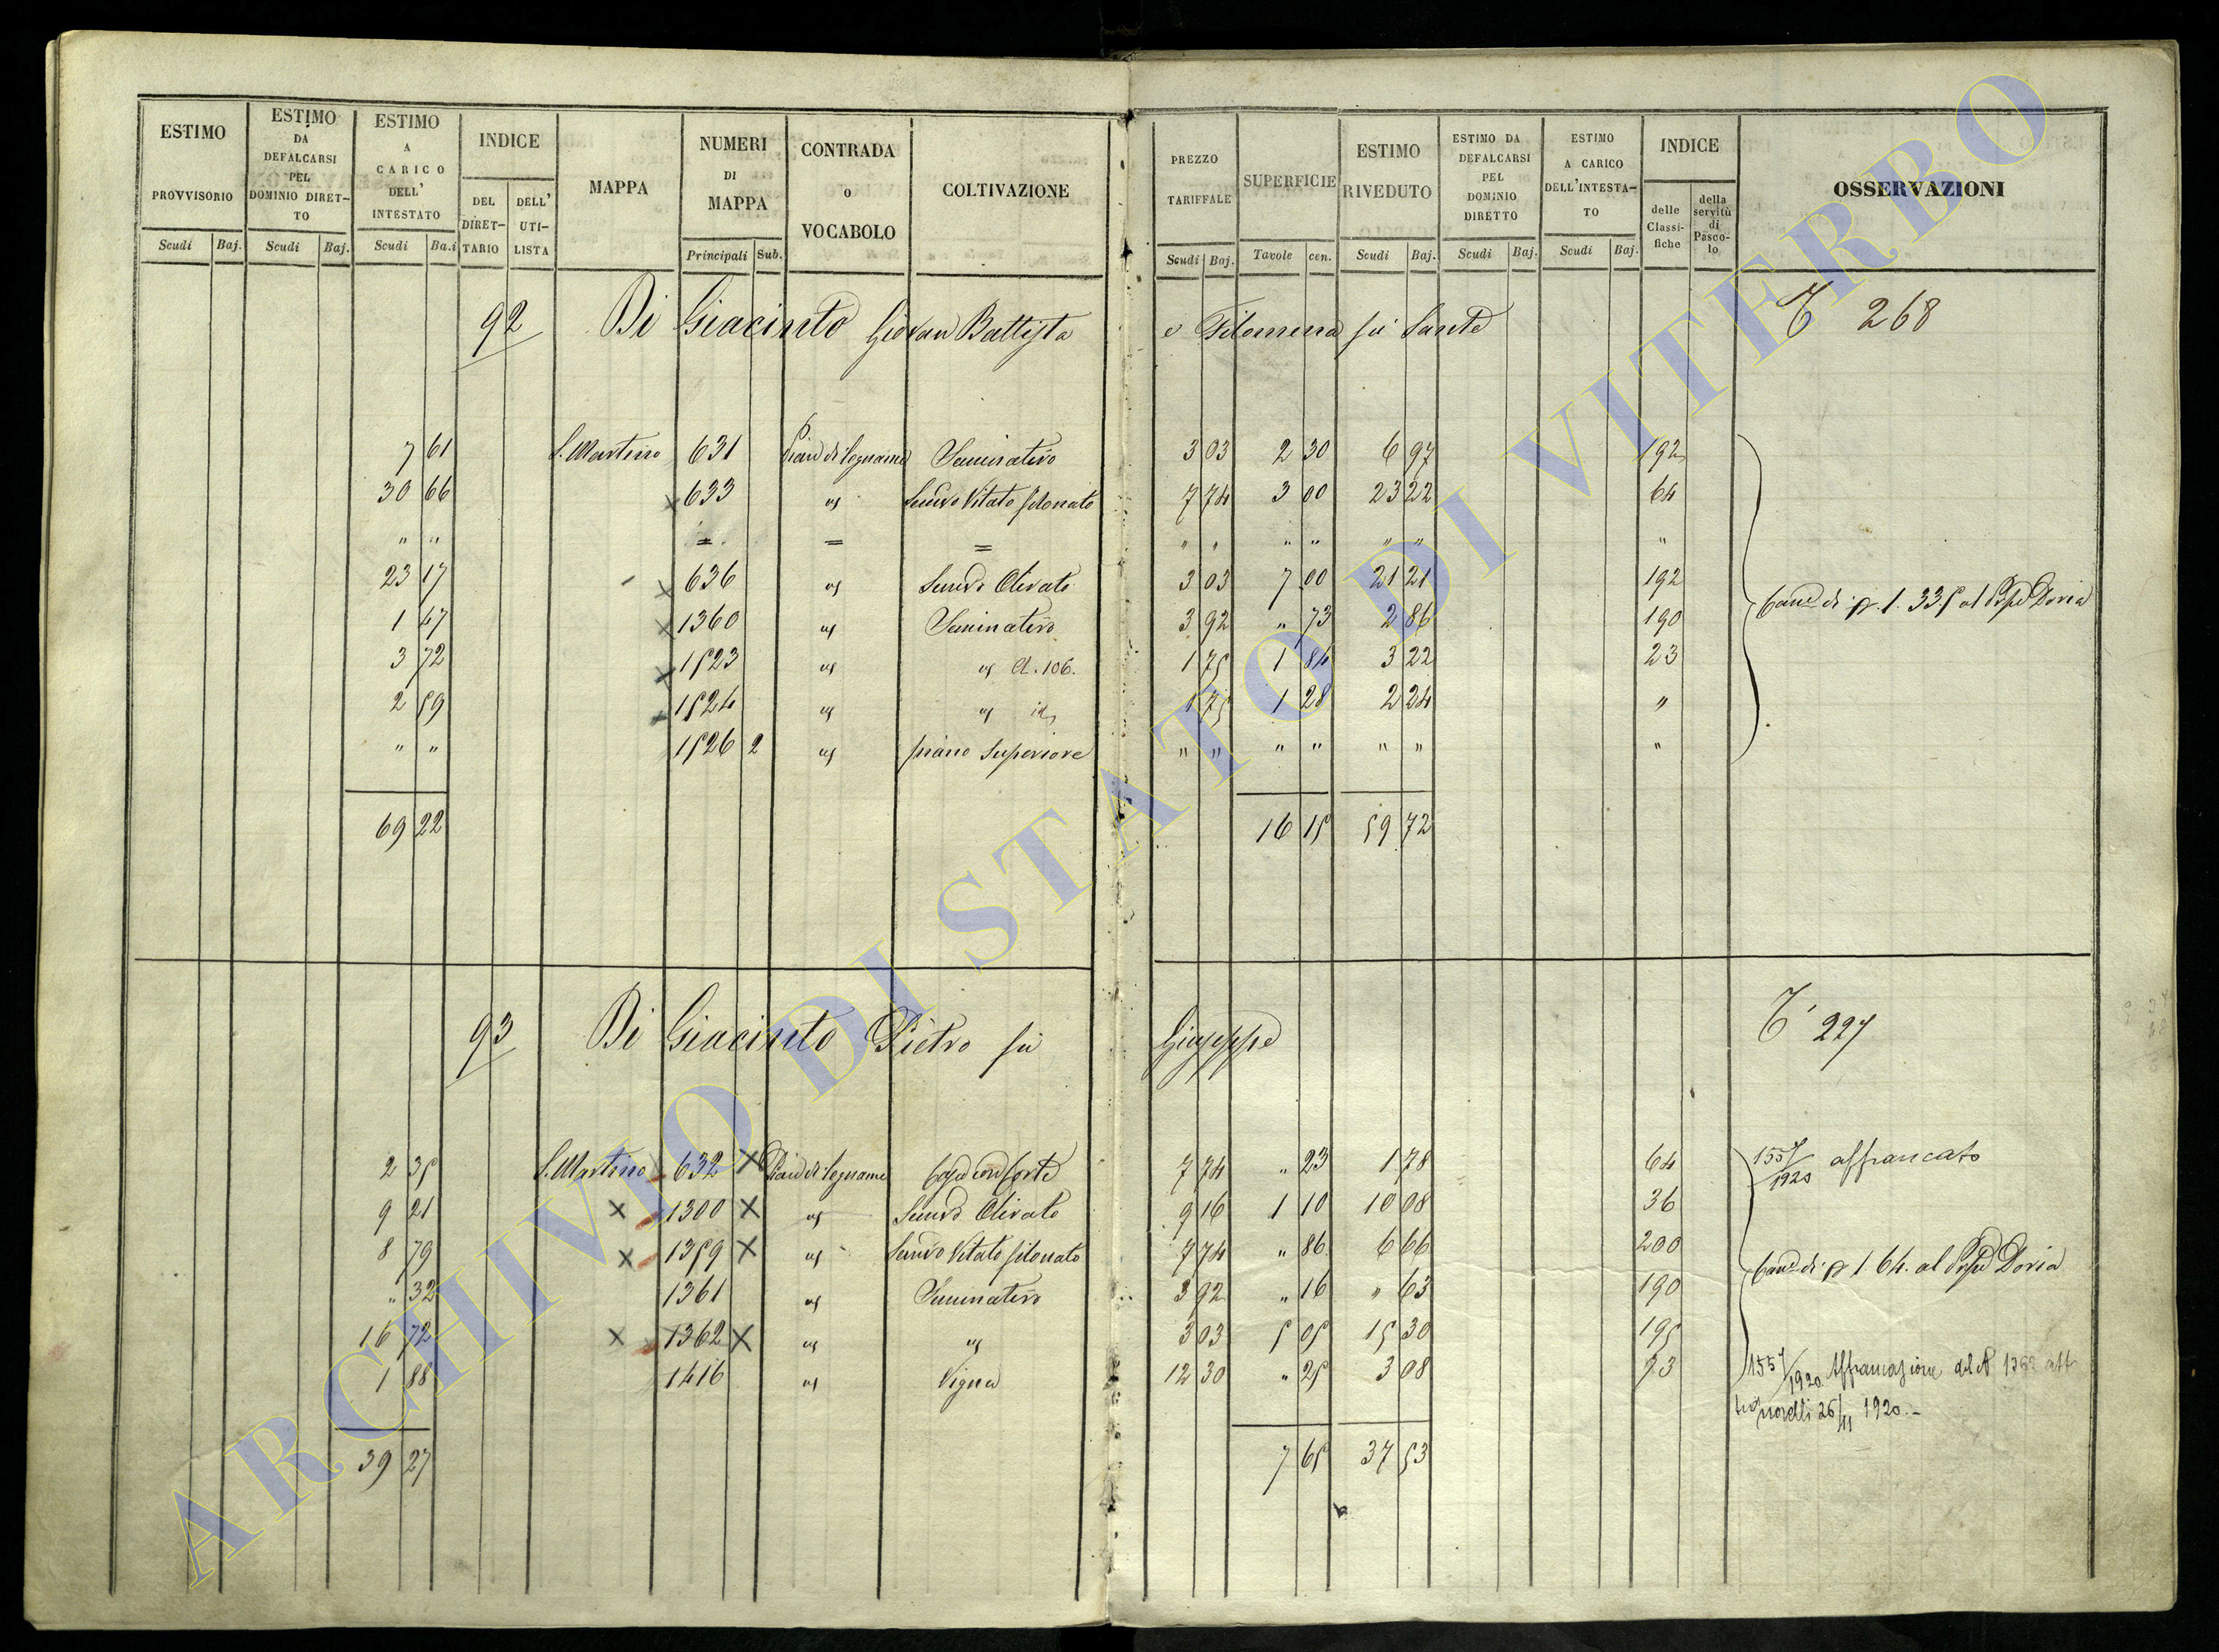 ESTIMO PROVVISORIO | ESTIMO DA DEFALCARSI PEL DOMINIO DIRETTO | ESTIMO A CARICO DELL' INTESTATO | INDICE | MAPPA | NUMERI DI MAPPA | CONTRADA o VOCABOLO | COLTIVAZIONE | PREZZO TARIFFALE | SUPERFICIE | ESTIMO RIVEDUTO | ESTIMO DA DEFALCARSI PEL DOMINIO DIRETTO | ESTIMO A CARICO DELL'INTESTATO | INDICE | OSSERVAZIONI
Scudi | Baj. | Scudi | Baj. | Scudi | Ba.i | DEL DIRETTARIO | DELL' UTILISTA | Principali | Sub. | Scudi | Baj. | Tavole | cen. | Scudi | Baj. | Scudi | Baj. | Scudi | Baj. | delle Classifiche | della servitù di Pascolo
92 Di Giacinto Giovan Battista e Filomena fu Sante T 268
7 61 S. Martino 631 Piano di Legname Seminativo 3 03 2 30 6 97 192
30 66 x 633 as Semvo Vitato filonato 7 74 3 00 23 22 64
" " = = = " " " " " " "
23 17 x 636 as Semvo Olivato 3 03 7 00 21 21 192
1 47 x 1360 as Seminativo 3 92 " 73 2 86 190
3 72 x 1523 as as Cl. 106. 1 75 1 84 3 22 23
2 59 x 1524 as as id 1 75 1 28 2 24 "
" " 1526 2 as piano Superiore " " " " " " "
di p. 1. 335 al Doria
69 22 16 15 59 72
93 Di Giacinto Pietro fu Giuseppe T 227
2 35 S. Martino 632 X Piano di Legname Casa con Corte 7 74 " 23 1 78 64 1557/1920 affrancato
9 21 x 1300 X as Semvo Olivato 9 16 1 10 10 08 36
8 79 x 1359 X as Semvo Vitato filonato 7 74 " 86 6 66 200
di p 1. 64. al Doria
" 32 1361 as Seminativo 3 92 " 16 " 63 190
16 72 x 1362 X as as 3 03 5 05 15 30 195
1 88 1416 as Vigna 12 30 " 25 3 08 73 1557/1920 Affrancazione del N 1362 att
26/11 1920.-
39 27 7 65 37 53
ARCHIVIO DI STATO DI VITERBO